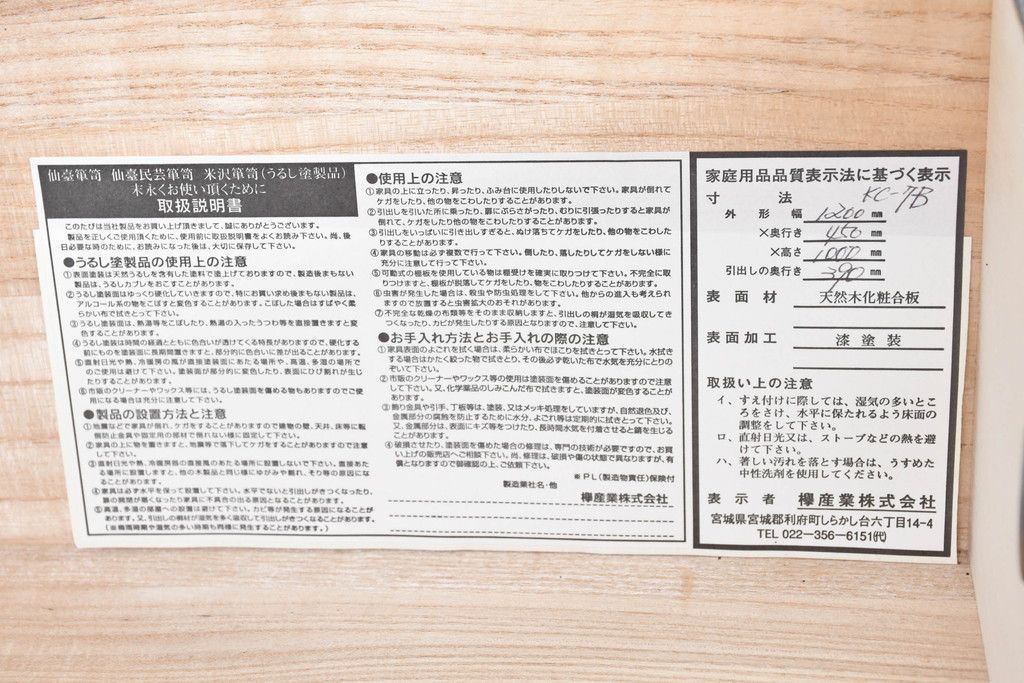 仙臺箪笥 仙臺民芸箪笥 米沢箪笥(うるし塗製品)
末永くお使い頂くために
取扱説明書
このたびは当社製品をお買い上げ頂きまして、誠にありがとうございます。
製品を正しくご使用頂くために、使用前に取扱説明書をよくお読み下さい。尚、後
日必要な時のために、お読みになった後は、大切に保存して下さい。
●うるし塗製品の使用上の注意
①表面塗装は天然うるしを含有した塗料で塗上げておりますので、製造後まもない
製品は、うるしカブレをおこすことがあります。
②うるし塗装面はゆっくり硬化していきますので、特にお買い求め後まもない製品は、
アルコール系の物をこぼすと変色することがあります。こぼした場合はすばやく柔
らかい布で拭きとって下さい。
③うるし塗装面は、熱湯等をこぼしたり、熱湯の入ったうつわ等を直接置きますと変
色することがあります。
④うるし塗装面は時間の経過とともに色合いが透けてくる特長がありますので、硬化する
前にものを塗装面に長期間置きますと、部分的に色合いに差が出ることがあります。
⑤直射日光や熱、冷暖房器の熱風が直接あたる場所や、高温、多湿の場所で
のご使用は避けて下さい。塗装面が部分的に変色したり、表面にひび割れが生じ
たりすることがあります。
⑥市販のクリーナーやワックス等には、うるし塗装面を傷める物もありますのでご使
用になる場合は充分に注意して下さい。
●製品の設置方法と注意
①地震などで家具が倒れ、ケガをすることがありますので建物の壁、天井、床等に転
倒防止金具や固定用の部材で倒れない様に固定して下さい。
②家具の上に物を置きますと、地震等で落下してケガをすることがありますので注意
して下さい。
③直射日光や熱、冷暖房器の直接風のあたる場所に設置しないで下さい。直接あた
る場所に設置しますと、他の木製品と同じ様にゆがみや割れ、そり等の原因になる
ことがあります。
④家具は必ず水平を保って設置して下さい。水平でないと引出しがきつくなったり、
扉の開閉が悪くなったり家具に不具合の出る原因となることがあります。
⑤高温、多湿の部屋への設置は避けて下さい。カビ等が発生する原因になることが
あります。又、引出しの桐材が湿気を多く吸収して引出しがきつくなることがあります。
(梅雨時期や湿気の多い時期も同様に発生することがあります。)
●使用上の注意
①家具の上に立ったり、昇ったり、ふみ台に使用したりしないで下さい。家具が倒れて
ケガをしたり、他の物をこわしたりすることがあります。
②引出しを引いた所に乗ったり、扉にぶらさがったり、むりに引張ったりすると家具が
倒れて、ケガをしたり他の物をこわしたりすることがあります。
③引出しをいっぱいに引き出しすぎると、ぬけ落ちてケガをしたり、他の物をこわした
りすることがあります。
④家具の移動は必ず複数で行って下さい。倒したり、落したりしてケガをしない様に
充分に注意して行って下さい。
⑤可動式の棚板を使用している物は棚受けを確実に取りつけて下さい。不完全に取
りつけますと、棚板が脱落してケガをしたり、物をこわしたりすることがあります。
⑥虫害が発生した場合は、殺虫や防虫処理をして下さい。他からの進入も考えられま
すので放置すると虫害拡大のおそれがあります。
⑦不完全な乾燥の衣類等をそのまま収納しますと、引出しの桐が湿気を吸収してき
つくなったり、カビが発生したりする原因となりますので、注意して下さい。
●お手入れ方法とお手入れの際の注意
①家具表面のよごれを拭く場合は、柔らかい布でほこりを拭きとって下さい。水拭き
する場合はかたく絞った物で拭きとり、その後必ず乾いた布で水気を充分にとりの
ぞいて下さい。
②市販のクリーナーやワックス等の使用は塗装面を傷めることがありますので注意
して下さい。又、化学薬品のしみこんだ布で拭きますと、塗装面が変色することが
あります。
③飾り金具や引手、丁板等は、塗装、又はメッキ処理をしていますが、自然退色及び、
金属部分の腐蝕を防止するために水分、よごれ等は定期的に拭きとって下さい。
又、金属部分は、表面にキズ等をつけたり、長時間水気を付着させると錆を生じる
ことがあります。
④破損させたり、塗装面を傷めた場合の修理は、専門の技術が必要ですので、お買
い上げの販売店へご相談下さい。尚、修理は、破損や傷の状態で異なりますが、有
償となりますので御確認の上、ご依頼下さい。
※PL(製造物責任)保険付
製造業社名・他
欅産業株式会社
家庭用品品質表示法に基づく表示
寸法 KC-7B
外形幅 1200 mm
×奥行き 450 mm
×高さ 1000 mm
引出しの奥行き 390 mm
表面材 天然木化粧合板
表面加工 漆塗装
取扱い上の注意
イ、すえ付けに際しては、湿気の多いとこ
ろをさけ、水平に保たれるよう床面の
調整をして下さい。
ロ、直射日光又は、ストーブなどの熱を避
けて下さい。
ハ、著しい汚れを落とす場合は、うすめた
中性洗剤を使用してください。
表示者 欅産業株式会社
宮城県宮城郡利府町しらかし台六丁目14-4
TEL 022-356-6151(代)